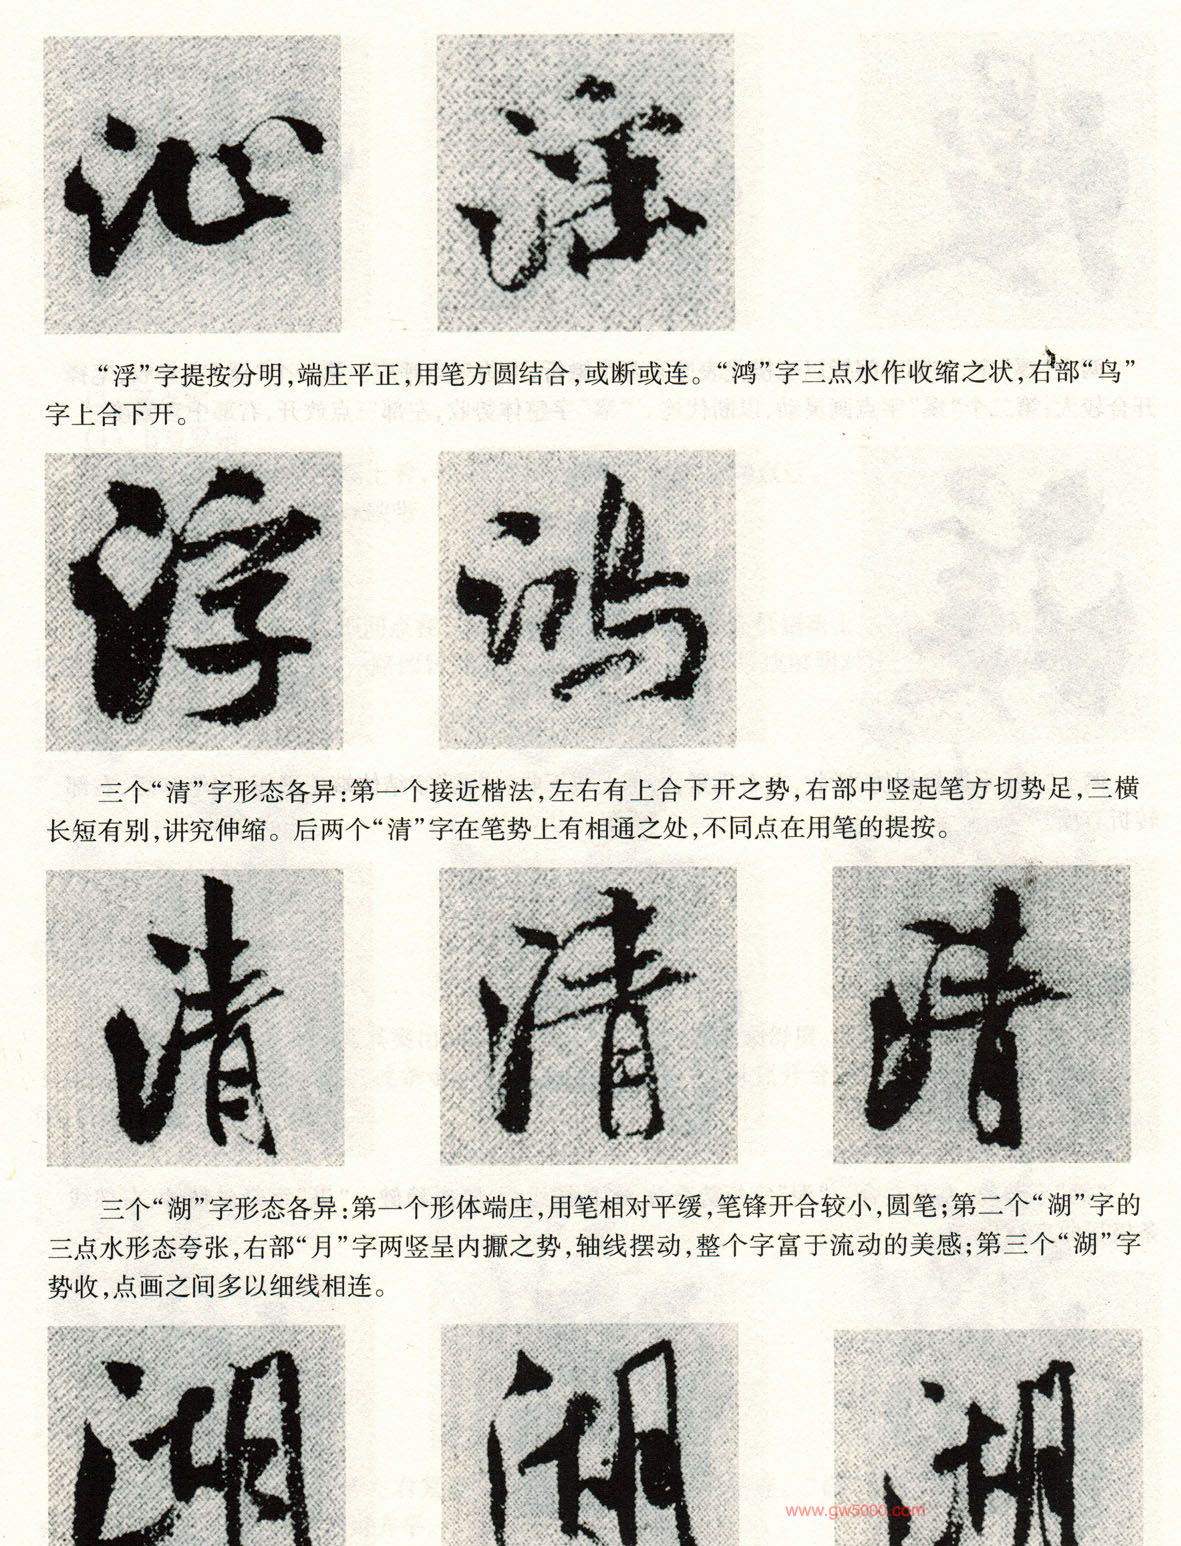 “浮”字提按分明,端庄平正,用笔方圆结合,或断或连。“鸿”字三点水作收缩之状,右部“鸟”
字上合下开。
浮 鸿
三个“清”字形态各异:第一个接近楷法,左右有上合下开之势,右部中竖起笔方切势足,三横
长短有别,讲究伸缩。后两个“清”字在笔势上有相通之处,不同点在用笔的提按。
清 清 清
三个“湖”字形态各异:第一个形体端庄,用笔相对平缓,笔锋开合较小,圆笔;第二个“湖”字的
三点水形态夸张,右部“月”字两竖呈内擫之势,轴线摆动,整个字富于流动的美感;第三个“湖”字
势收,点画之间多以细线相连。
湖 湖 湖
www.gw5000.com